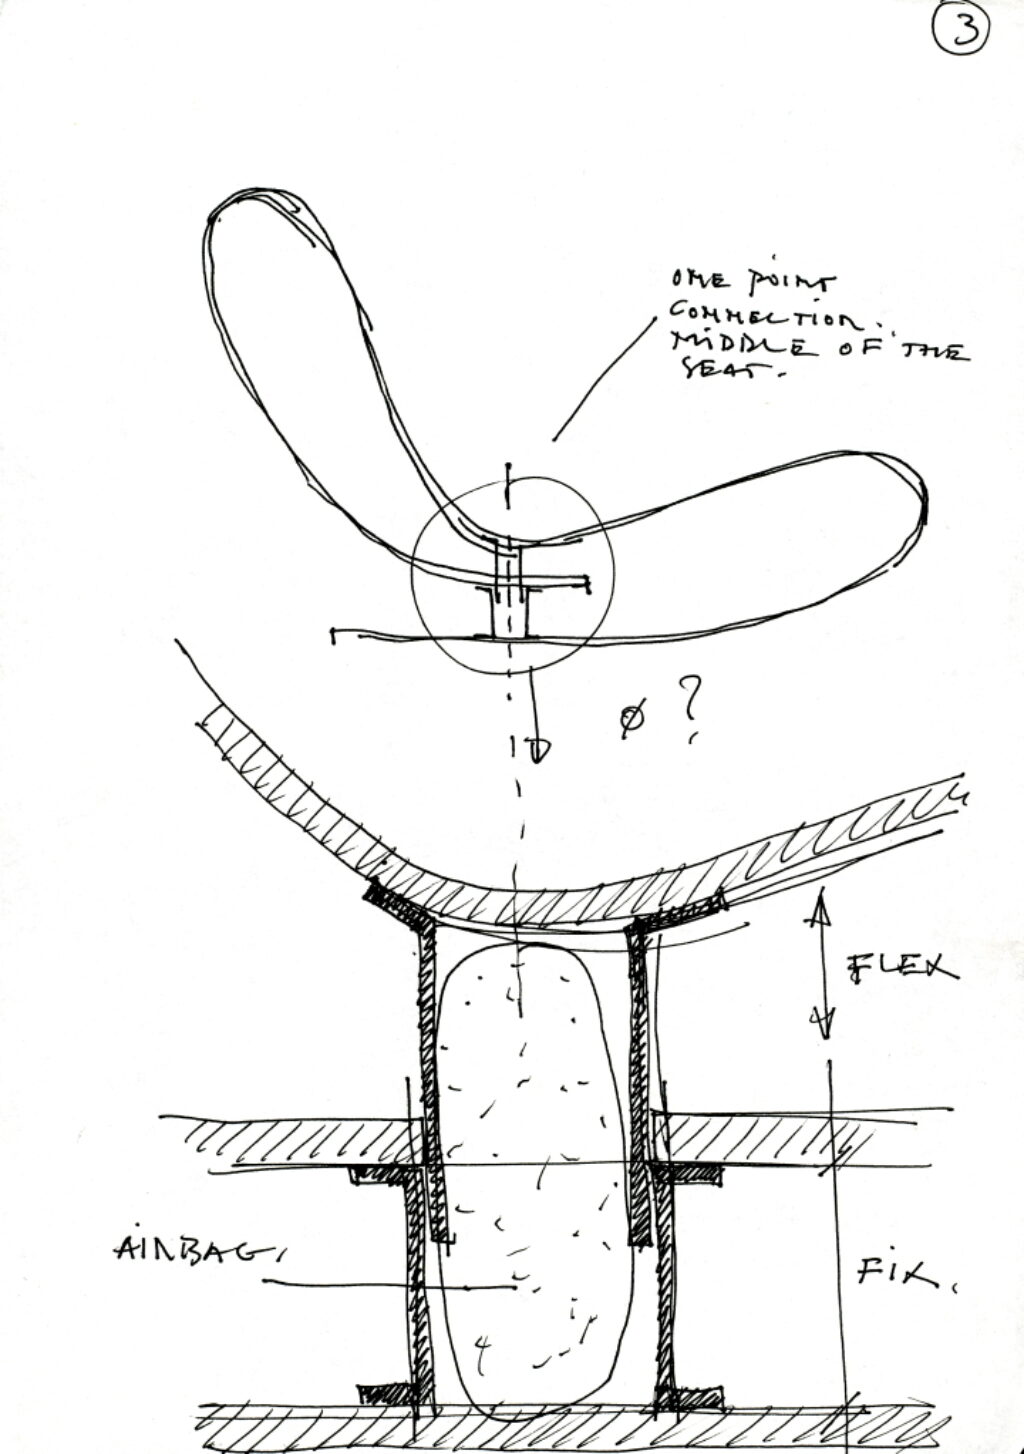 3
ONE POINT
CONNECTION.
MIDDLE OF THE
SEAT.
Ø ?
FLEX
AIRBAG.
FIX.